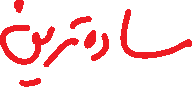 ساده‌ترین